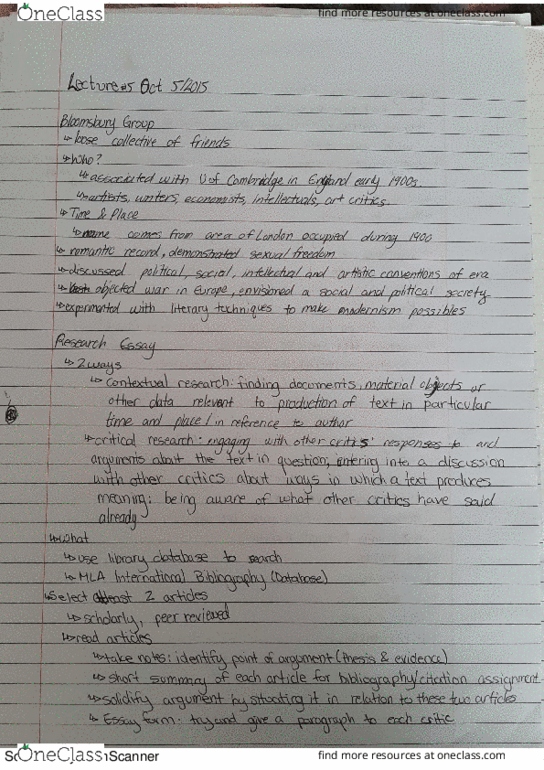 OneClass
find more resources at oneclass.com
Lecture #5 Oct 5/2015
Bloomsbury Group
↳ loose collective of friends
↳ Who?
↳ associated with U of Cambridge in England early 1900s.
↳ artists, writers, economists, intellectuals, art critics.
↳ Time & Place
↳ name comes from area of London occupied during 1900
↳ romantic record, demonstrated sexual freedom
↳ discussed political, social, intellectual and artistic conventions of era
↳ objected war in Europe, envisioned a social and political society
↳ experimented with literary techniques to make modernism possibles
Research Essay
↳ 2 ways
↳ contextual research: finding documents, material objects or
other data relevant to production of text in particular
time and place / in reference to author
↳ critical research: engaging with other critics' responses to and
arguments about the text in question; entering into a discussion
with other critics about ways in which a text produces
meaning: being aware of what other critics have said
already
↳ What
↳ use library database to search
↳ MLA International Bibliography (Database)
↳ Select atleast 2 articles
↳ scholarly, peer reviewed
↳ read articles
↳ take notes: identify point of argument (thesis & evidence)
↳ short summary of each article for bibliography/citation assignment
↳ solidify argument by situating it in relation to these two articles
↳ Essay form: try and give a paragraph to each critic
OneClass
Scanner
find more resources at oneclass.com